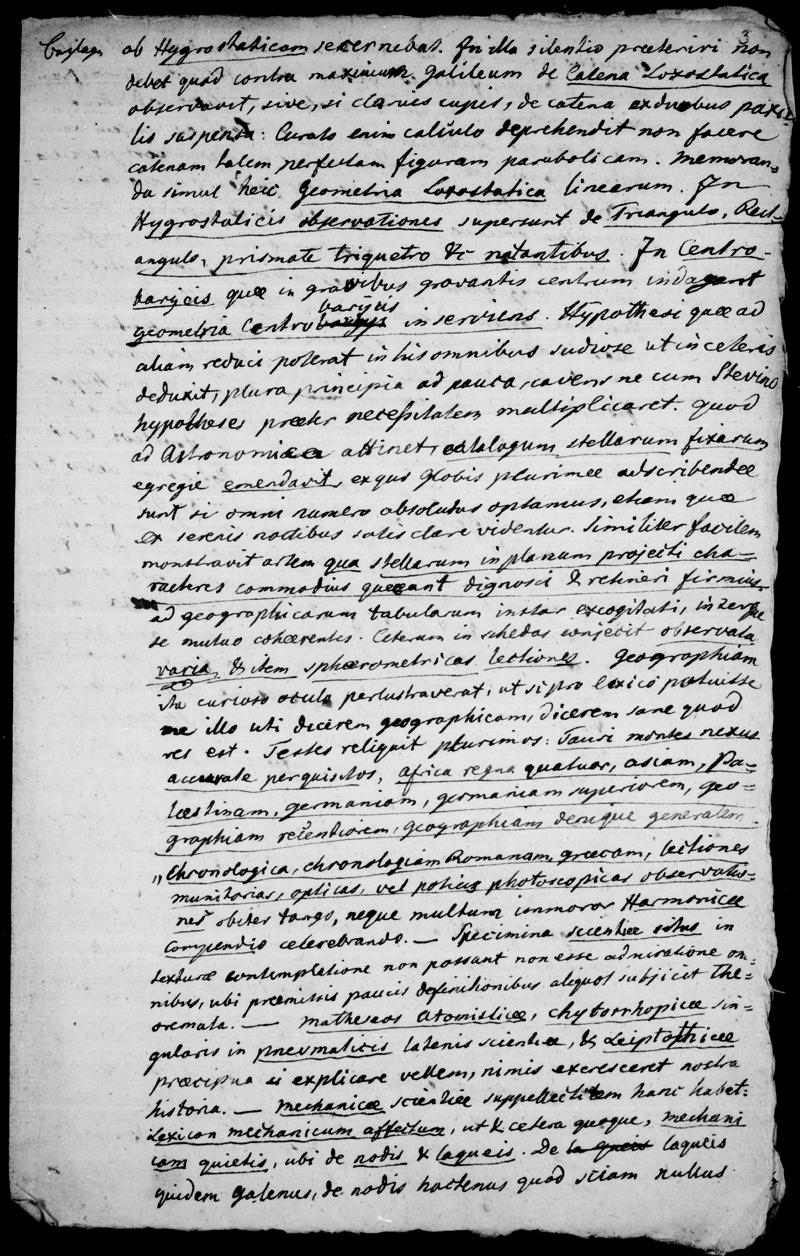 3
ab Hygrostaticam secernebat. In illa silentio præteriri non
debet quod contra maximum Galileum de Catena Loxostatica
observavit, sive, si clarius cupis, de catena ex duobus paxil
lis suspensa: Curato enim calculo deprehendit non facere
catenam talem perfectam figuram parabolicam. Memoran=
da simul heic Geometria Loxostatica linearum. In
Hygrostaticis observationes supersunt de Triangulo, Rect=
angulo, prismate triquetro &c natantibus. In Centro-
barycis quæ in gravibus gravantis centrum indagant
barycis
geometria Centro inserviens. Hypothesi quæ ad
aliam reduci poterat in his omnibus sudiose ut in ceteris
deduxit, plura principia ad pauca, cavens ne cum Stevino
hypotheses præter necessitatem multiplicaret. quod
ad Astronomica attinet, catalogum stellarum fixarum
egregie emendavit, ex quo globis plurimæ adscribendæ
sunt si omni numero absolutos optamus, etiam quæ
ex serenis noctibus satis clare videntur. Similiter facilem
monstravit artem qua stellarum in planum projecti cha=
racteres commodius queant dignosci & retineri firmius,
ad geographicarum tabularum instar excogitati, integre
se mutuo cohærentes. Ceterum in schedas conjecit observata
varia, & item sphærometricas lectiones. Geographiam
ita curioso oculo perlustraverat, ut si pro lexico potuisse
me illo uti dicerem geographicam, dicerem sane quod
res est. Testes reliquit plurimos: Tauri montes nexus
accurate perquisitos, africa regna quatuor, asiam, Pa=
læstinam, germaniam, germaniam superiorem, geo=
graphiam recentiorem, geographiam denique generalem.
„Chronologica, chronologiam Romanam, græcam, lectiones
munitorias, opticas, vel potius photoscopicas observatio=
nes obiter tango, neque multum immoror Harmonicæ
compendio celebrando. — Specimina scientiæ situs in
texturæ contemplatione non possunt non esse admiratione om=
nibus, ubi præmissis paucis definitionibus aliquot subjicit The=
oremata. — Matheseos Atomisticæ, chytorrhopicæ sin=
gularis in pneumaticis latenis scientiæ, & Leiptophicæ
præcipua si explicare vellem, nimis excresceret nostra
historia. — Mechanicæ scientiæ suppellectilem hanc habet:
Lexicon mechanicum affectum, ut & cetera quoque, mechani
cam quietis, ubi de nodis & laqueis. De laqueis
quidem galenus, de nodis hactenus quod sciam nullus